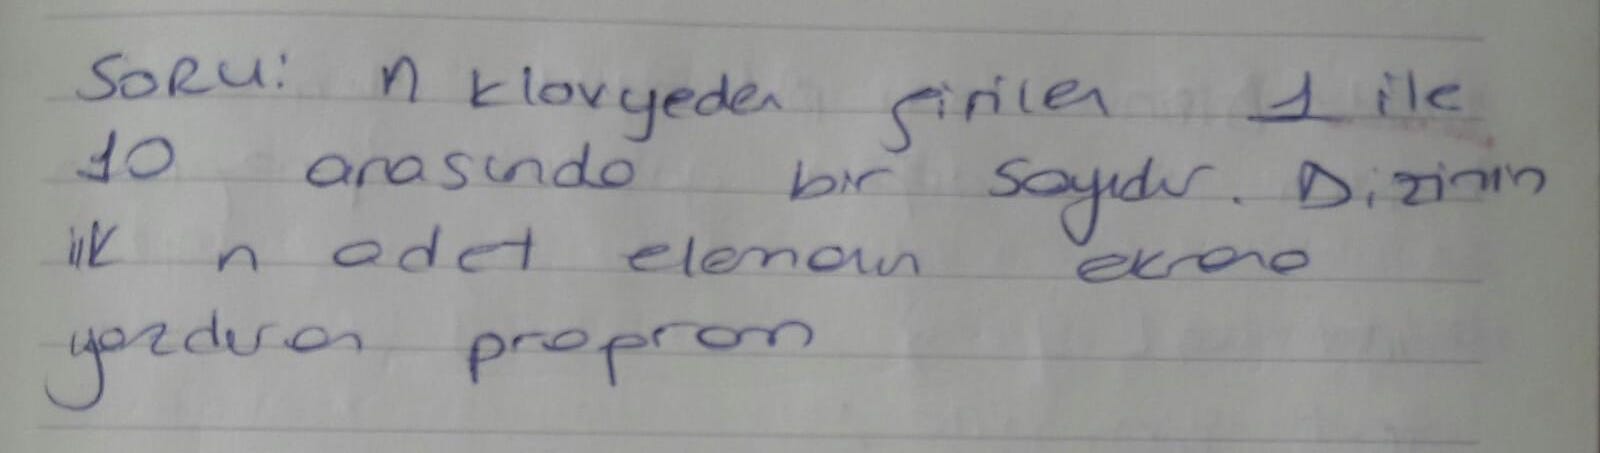 SORU: n klavyeden girilen 1 ile
10 arasında bir sayıdır. Dizinin
ilk n adet elemanını ekrana
yazdıran program